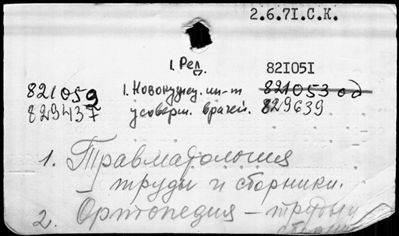 2.6.71.С.К.
1. Ред.
821051
821059
1. Новокузнец. ин-т
821053 од
829437
усоверш. врачей.
829639
1. Травматология
— труды и сборники.
2. Ортопедия — труды и